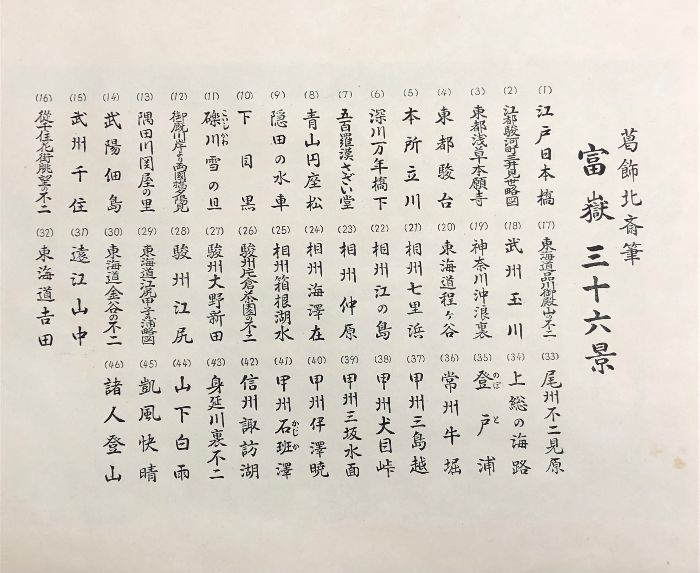 葛飾北斎筆
富嶽三十六景
(1) 江戸日本橋
(2) 江都駿河町三井見世略図
(3) 東都浅草本願寺
(4) 東都駿台
(5) 本所立川
(6) 深川万年橋下
(7) 五百羅漢さざい堂
(8) 青山円座松
(9) 隠田の水車
(10) 下目黒
(11) 礫川雪の旦
こいしかわ
(12) 御厩川岸より両國橋夕陽見
(13) 隅田川関屋の里
(14) 武陽佃島
(15) 武州千住
(16) 従千住花街眺望の不二
(17) 東海道品川御殿山の不二
(18) 武州玉川
(19) 神奈川沖浪裏
(20) 東海道程ヶ谷
(21) 相州七里浜
(22) 相州江の島
(23) 相州仲原
(24) 相州梅澤在
(25) 相州箱根湖水
(26) 駿州片倉茶園の不二
(27) 駿州大野新田
(28) 駿州江尻
(29) 東海道江尻田子の浦略図
(30) 東海道金谷の不二
(31) 遠江山中
(32) 東海道吉田
(33) 尾州不二見原
(34) 上総の海路
(35) 登戸浦
のぼと
(36) 常州牛堀
(37) 甲州三島越
(38) 甲州犬目峠
(39) 甲州三坂水面
(40) 甲州伊澤暁
(41) 甲州石班澤
かじか
(42) 信州諏訪湖
(43) 身延川裏不二
(44) 山下白雨
(45) 凱風快晴
(46) 諸人登山